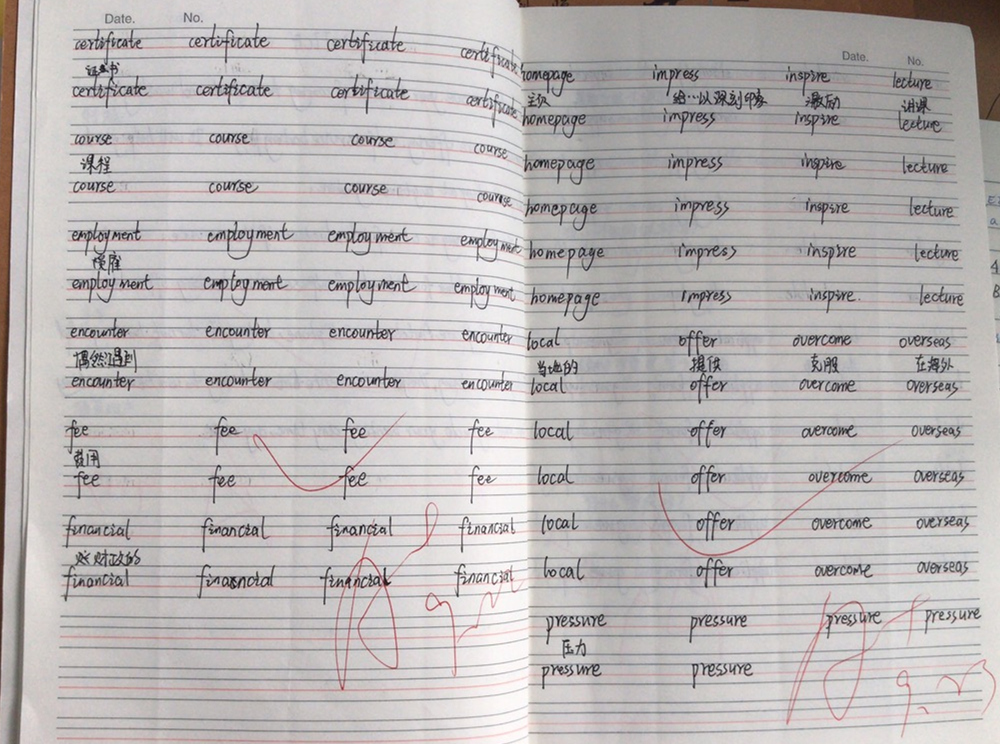 Date. No.
certificate certificate certificate certificate
证书
certificate certificate certificate certificate
course course course course
课程
course course course course
employment employment employment employment
employment employment employment employment
encounter encounter encounter encounter
偶然遇到
encounter encounter encounter encounter
fee fee fee fee
费用
fee fee fee fee
financial financial financial financial
财政的
financial financial financial financial
Date. No.
homepage impress inspire lecture
主页 给…以深刻印象 激励 讲课
homepage impress inspire lecture
homepage impress inspire lecture
homepage impress inspire lecture
homepage impress inspire lecture
homepage impress inspire. lecture
local offer overcome overseas
当地的 提供 克服 在海外
local offer overcome overseas
local offer overcome overseas
local offer overcome overseas
local offer overcome overseas
local offer overcome overseas
pressure pressure pressure pressure
压力
pressure pressure